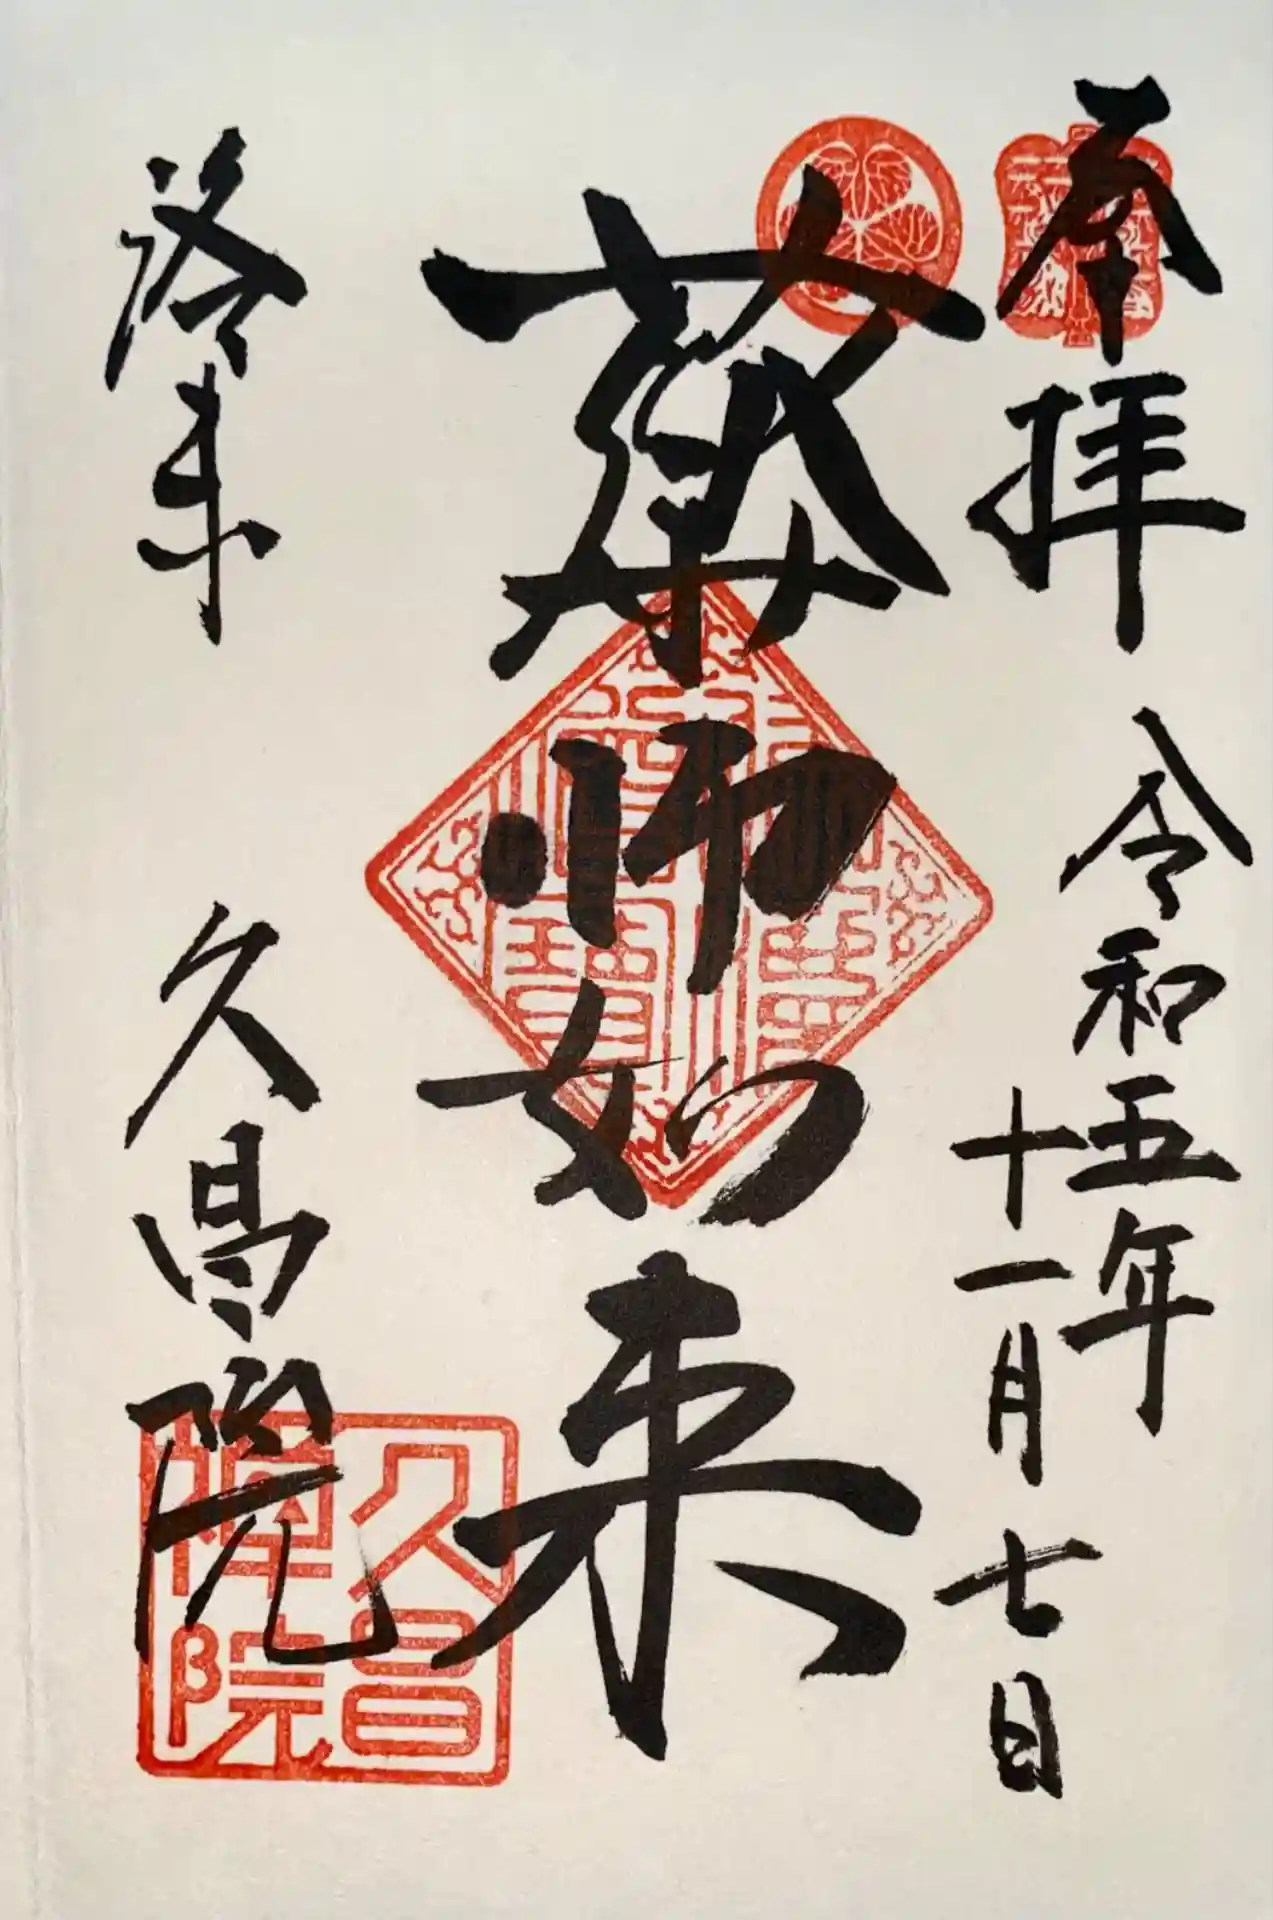 奉拝
令和五年
十一月七日
薬師如来
洛東
久昌院
久昌
禅院